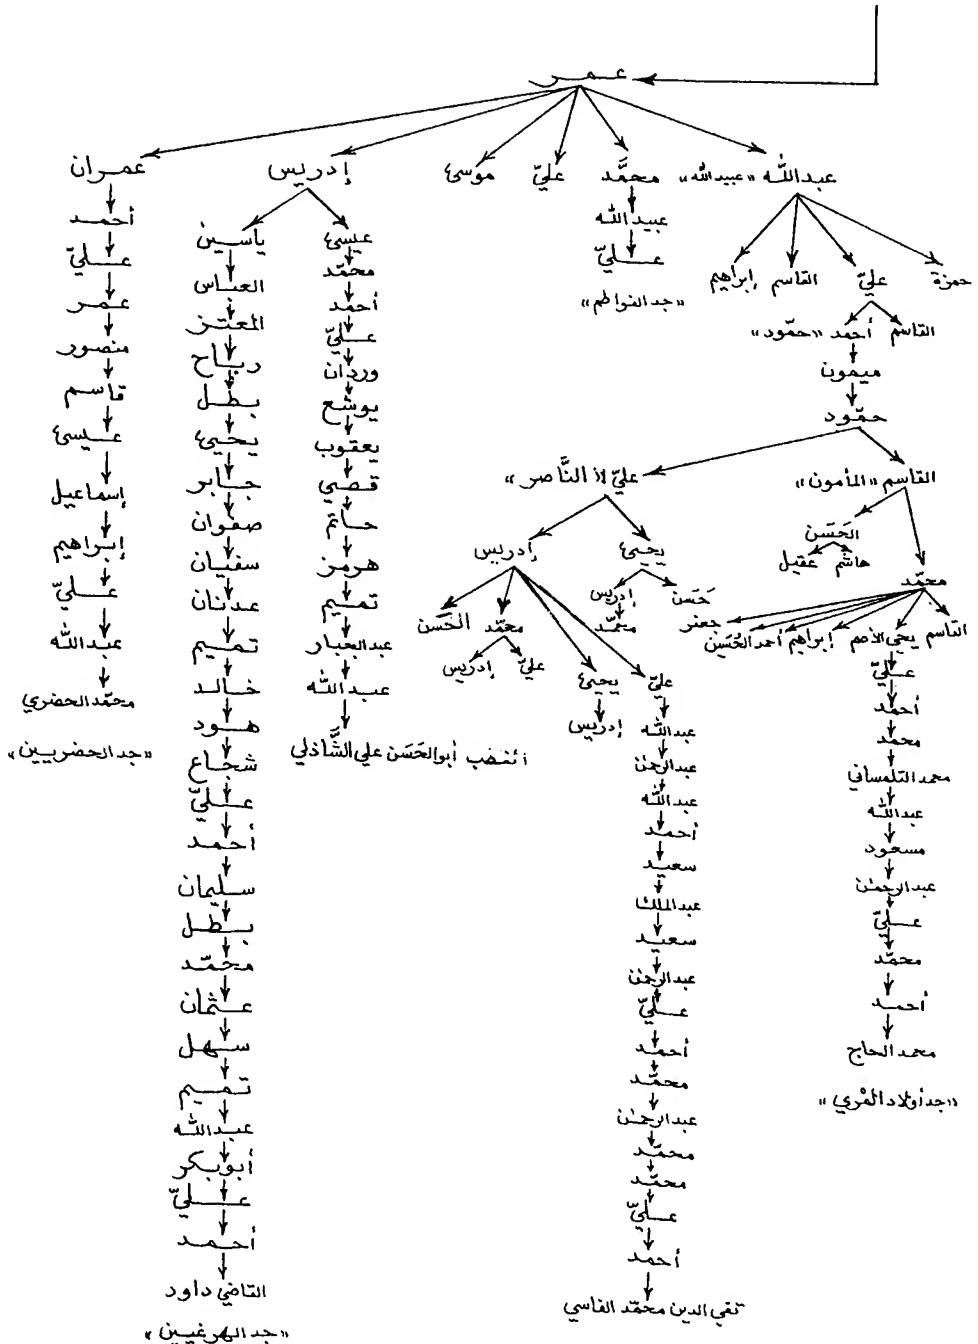 عمر
عبدالله «عبيدالله»
محمَّد
عليّ
موسىٰ
إدريس
عمران
حمزة
عليّ
القاسم
إبراهيم
القاسم
أحمد «حمّود»
ميمون
حمّود
القاسم «المأمون»
الحَسَن
هاشم
عقيل
محمّد
القاسم
يحيى الأصم
إبراهيم
أحمد
الحُسَين
جعفر
عليّ
أحمد
محمد
محمد التلمساني
عبدالله
مسعود
عبدالرحمٰن
عليّ
محمّد
أحمد
محمد الحاج
«جد أولاد المقري»
النَّاصر»
يحيىٰ
حَسَن
إدريس
محمّد
إدريس
عليّ
عبدالله
عبدالرحمٰن
عبدالله
أحمد
سعيد
عبدالملك
سعيد
عبدالرحمٰن
عليّ
أحمد
محمّد
عبدالرحمٰن
محمّد
محمّد
عليّ
أحمد
تقي الدين محمّد الفاسي
يحيىٰ
إدريس
محمّد
عليّ
إدريس
الحَسَن
عبيدالله
عليّ
«جد الفواطم»
عيسىٰ
محمّد
أحمد
عليّ
وردان
يوشع
يعقوب
قصي
حاتم
هرمز
تميم
عبدالجبار
عبدالله
أبوالحَسَن علي الشَّاذلي
ياسين
العباس
المعتز
رباح
بطل
يحيىٰ
جابر
صفوان
سفيان
عدنان
تميم
خالد
هود
شجاع
عليّ
أحمد
سليمان
بطل
محمّد
عثمان
سهل
تميم
عبدالله
أبوبكر
عليّ
أحمد
القاضي داود
«جد الهرغيين»
أحمد
عليّ
عمر
منصور
قاسم
عيسىٰ
إسماعيل
إبراهيم
عليّ
عبدالله
محمّد الحضري
«جد الحضريين»